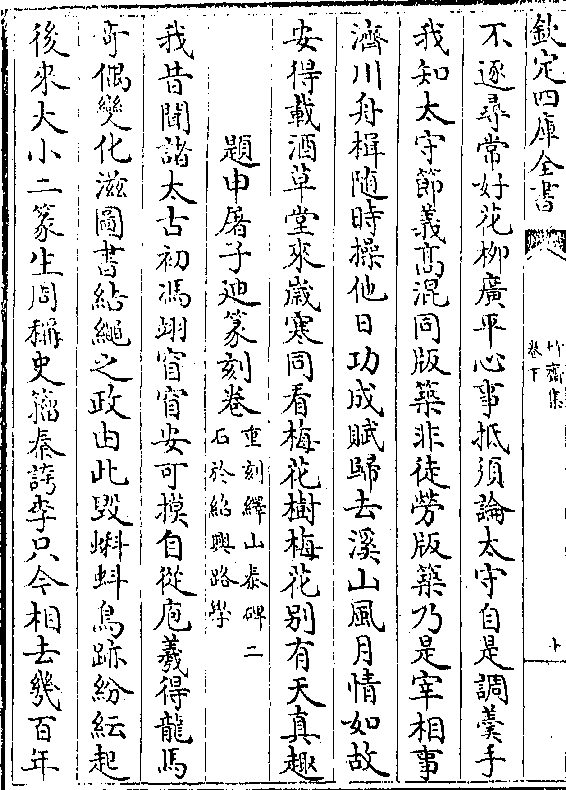 欽定四庫全書
竹齋集
卷下
不逐尋常好花柳廣平心事抵須論太守自是調羹手
我知太守節義髙混同版築非徒勞版築乃是宰相事
濟川舟楫随時操他日功成賦歸去溪山風月情如故
安得載酒草堂來歲寒同看梅花樹梅花别有天真趣
題申屠子迪篆刻卷重刻繹山秦碑二
石於紹興路學
我昔聞諸太古初馮翊窅窅安可摸自從庖羲得龍馬
奇偶變化滋圖書結繩之政由此毁蝌蚪鳥跡紛紜起
後來大小二篆生周稱史籀秦誇李只今相去幾百年